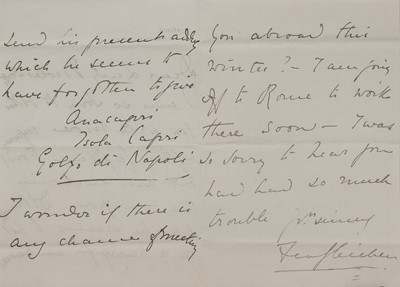 send his present addss
which he seems to
have forgotten to give
Anacapri
Isola Capri
Golfo di Napoli
I wonder if there is
any chance of meeting
you abroad this
winter? – I am going
off to Rome to work
there soon – I was
so sorry to hear you
had had so much
trouble Yrs sincerely
Feo Gleichen